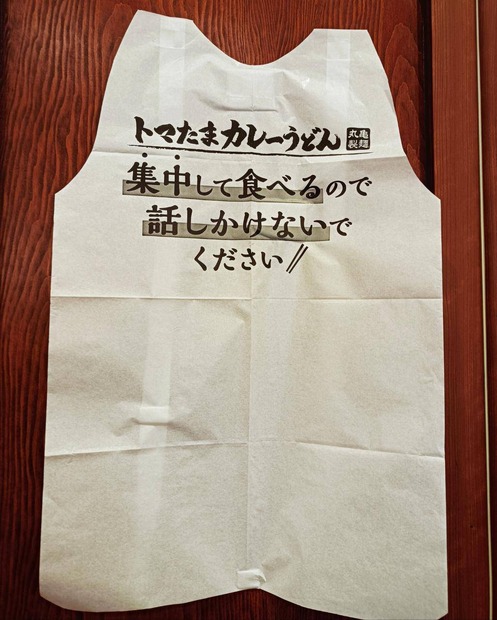 トマたまカレーうどん 丸亀製麺
集中して食べるので
話しかけないで
ください